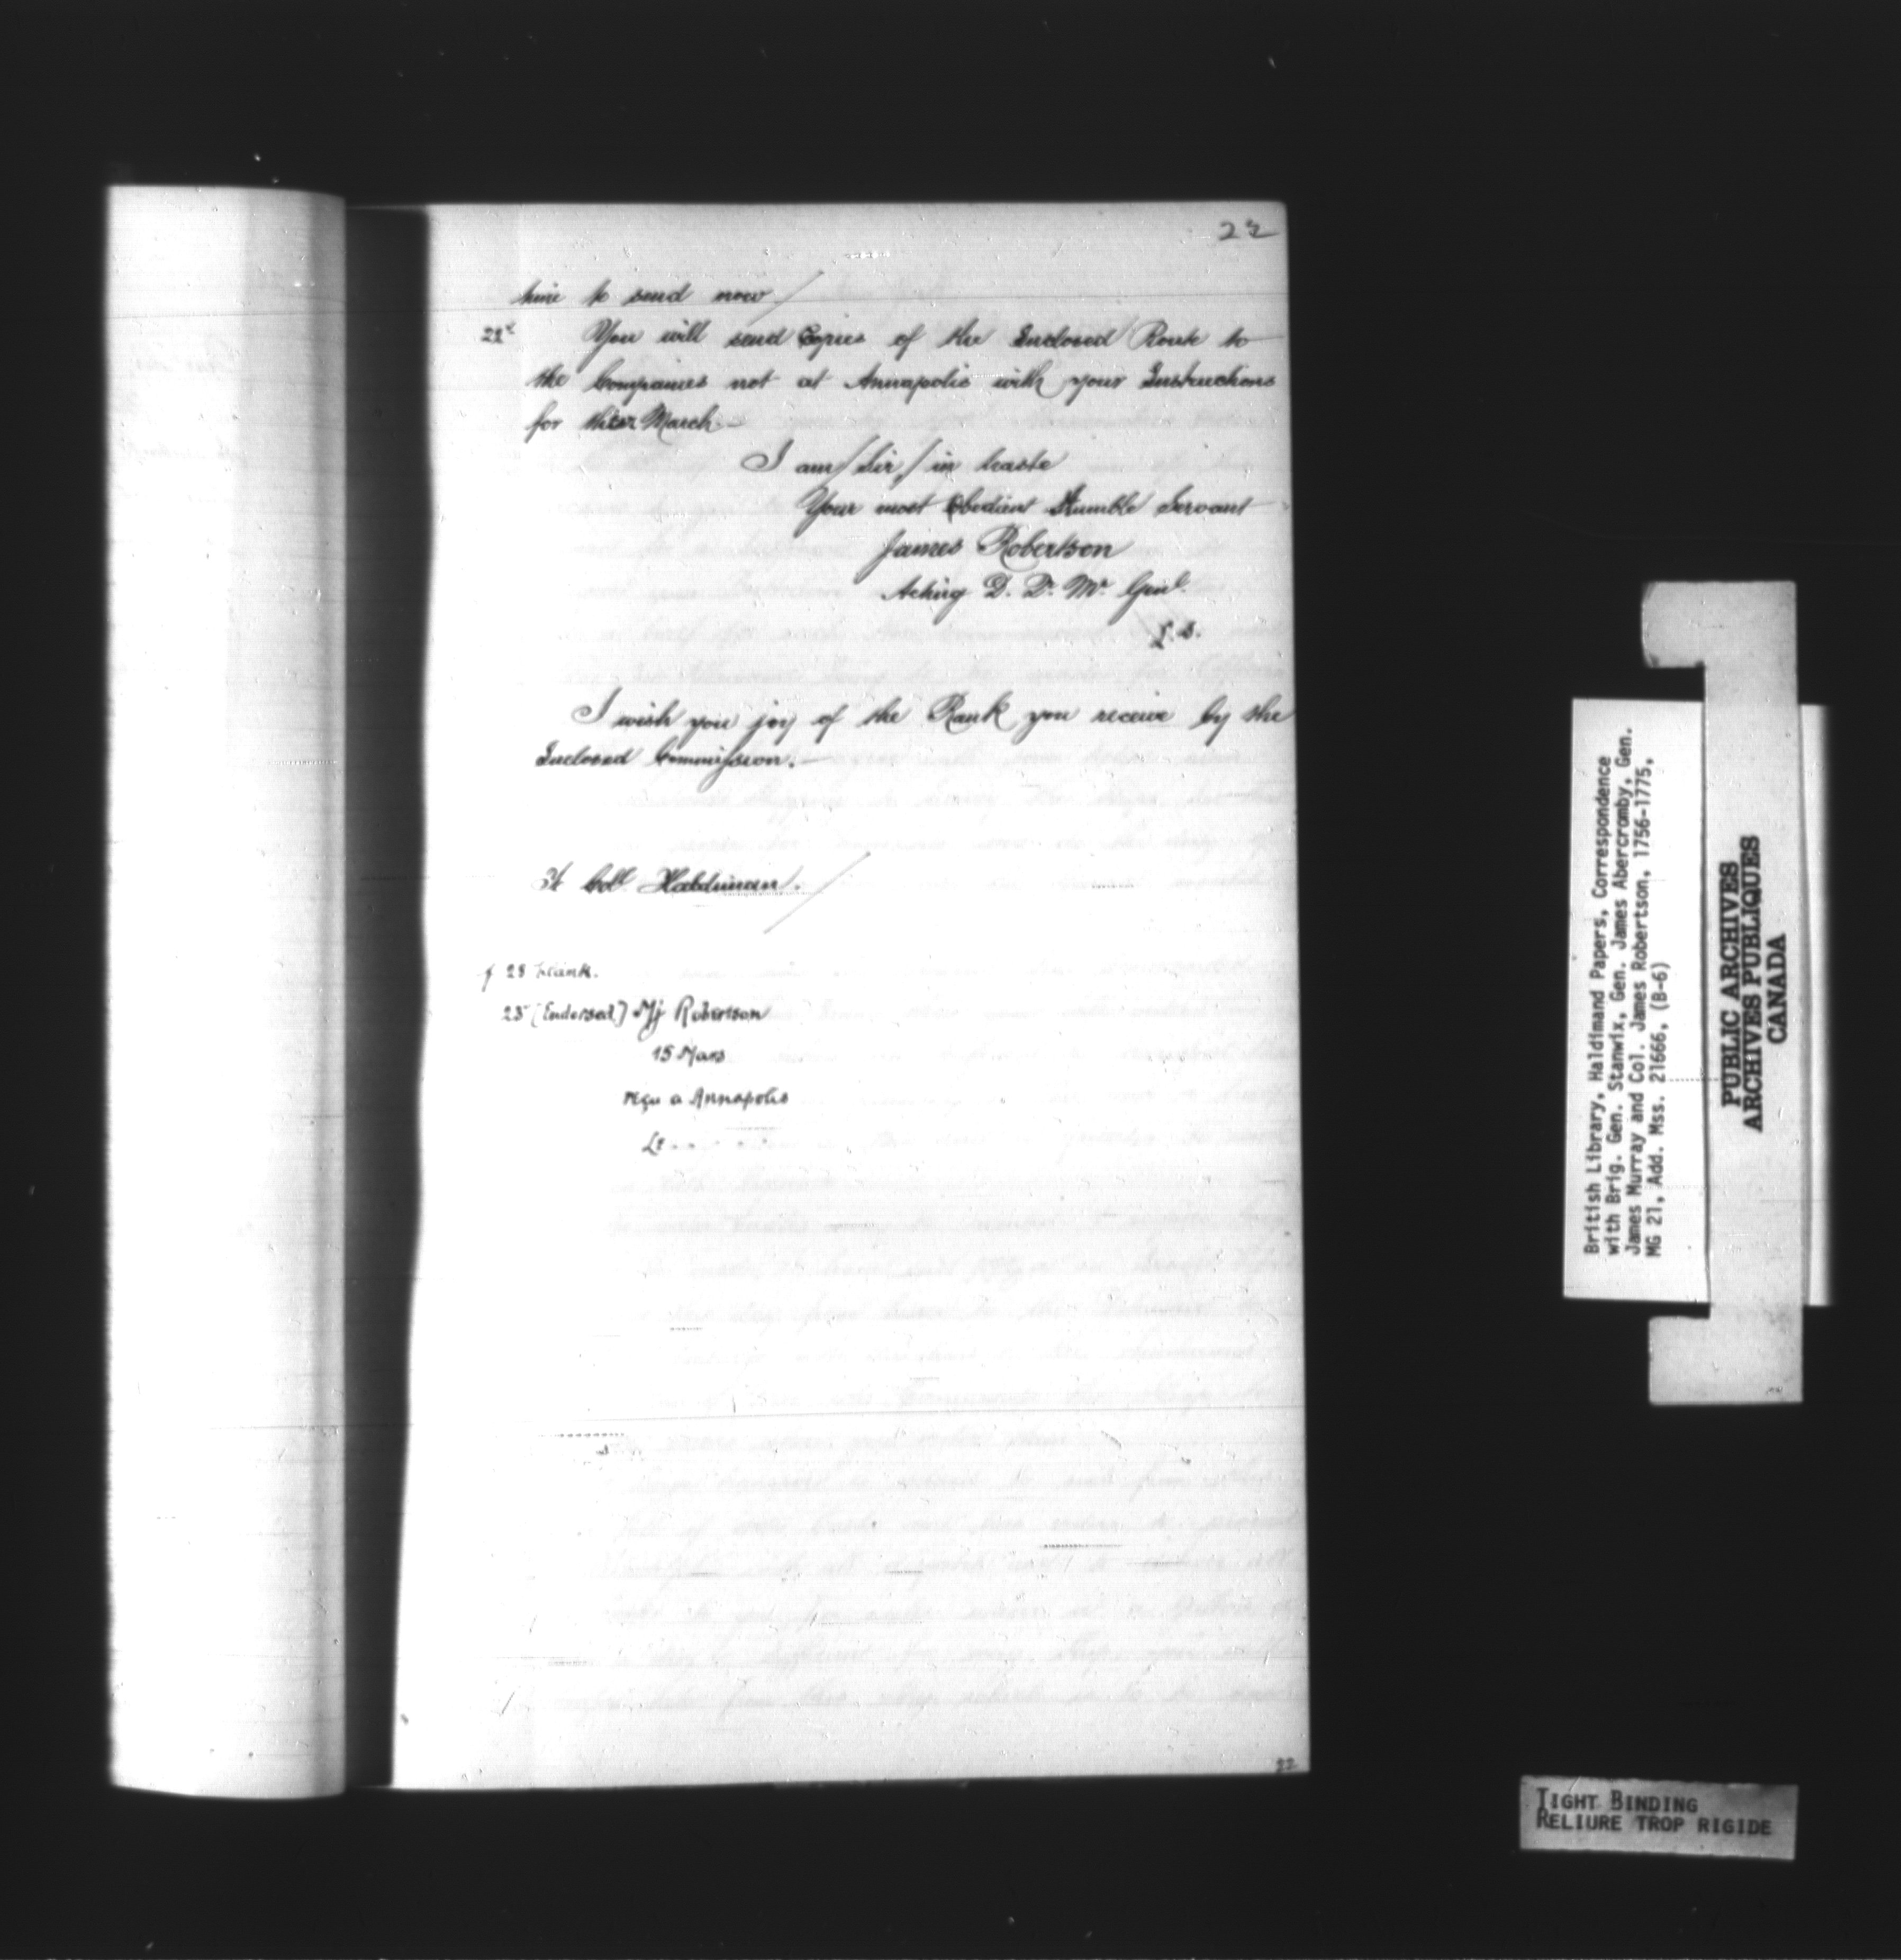 22
time to send now /
You will send Copies of the Inclosed Route to
the Companies not at Annapolis with your Instructions
for their March.—
I am / Sir, / in haste
Your most Obedient Humble Servant
James Robertson
Acting D. Qr. Mr. Genl.
I wish you joy of the Rank you receive by the
Inclosed Commission.—
Lt Coll Haldiman. /
f 23 blank.
23v (Endorsed) Mj Robertson
15 Mars
reçu a Annapolis
Le
22
British Library, Haldimand Papers, Correspondence
with Brig. Gen. Stanwix, Gen. James Abercromby, Gen.
James Murray and Col. James Robertson, 1756-1775,
MG 21, Add. Mss. 21666, (B-6)
PUBLIC ARCHIVES
ARCHIVES PUBLIQUES
CANADA
TIGHT BINDING
RELIURE TROP RIGIDE